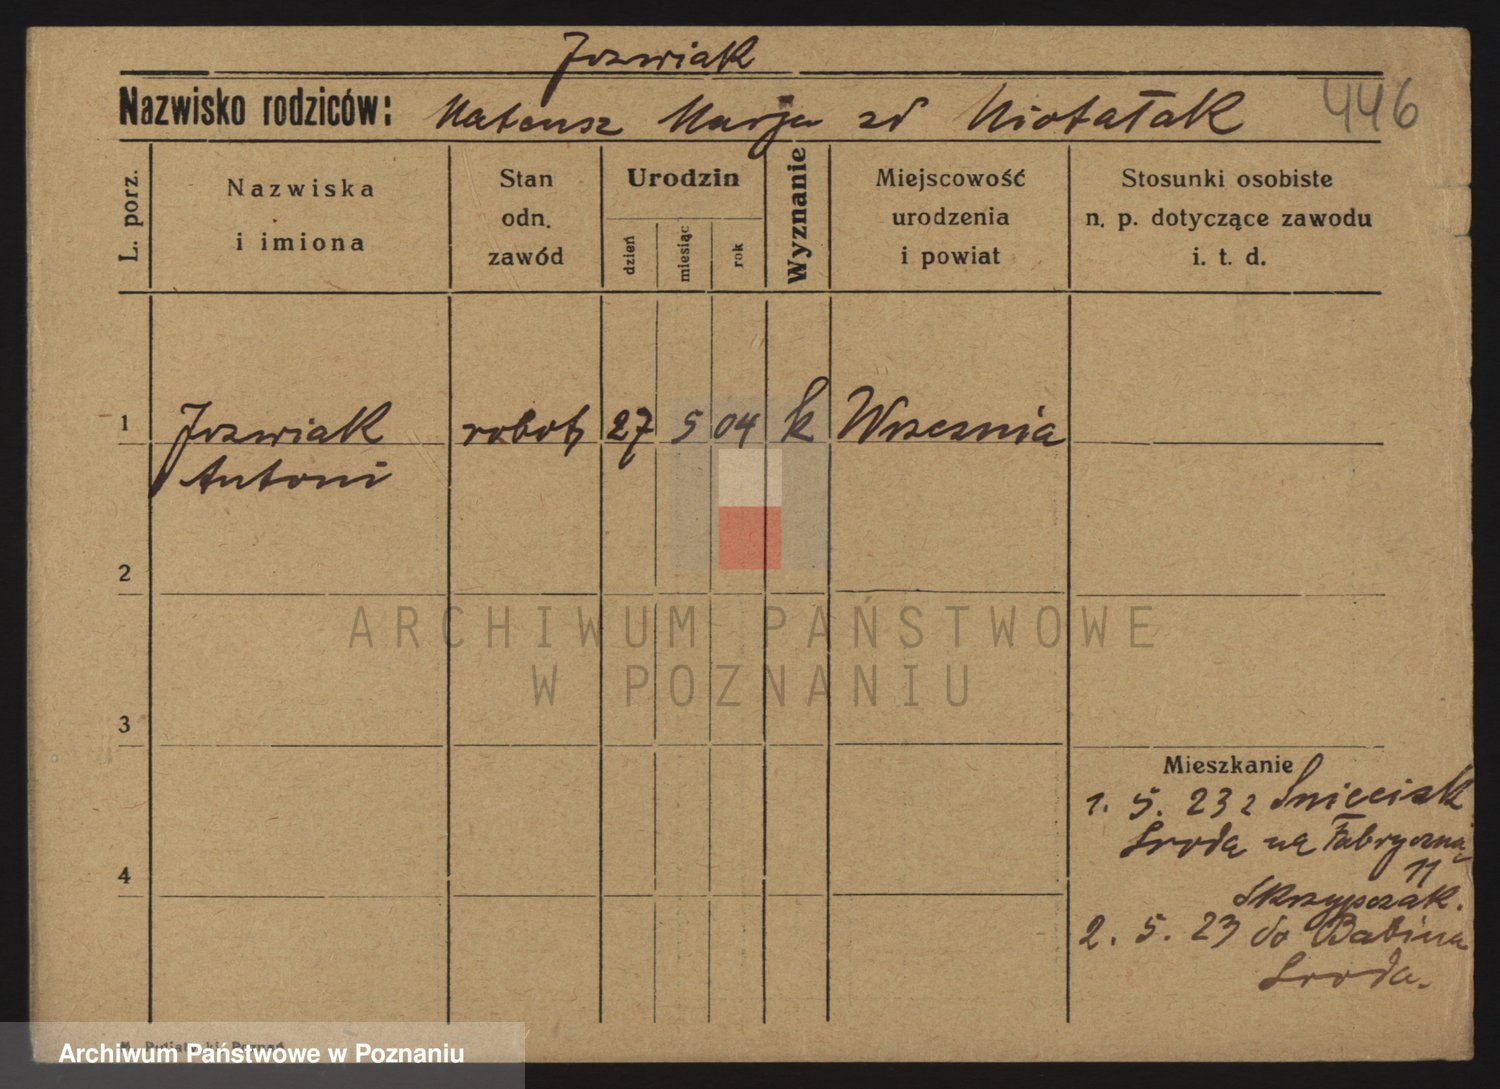 Jozwiak
Nazwisko rodziców: Mateusz Marja zd
446
L. porz.
Nazwiska i imiona
Stan odn. zawód
Urodzin
dzień miesiąc rok
Wyznanie
Miejscowość urodzenia i powiat
Stosunki osobiste n. p. dotyczące zawodu i. t. d.
1 Jozwiak robot 27 5 04 k Wrzesnia
Antoni
2
3
Mieszkanie
1. 5. 23 z
Sroda na Fabryczną
11
4
Skrzypczak.
2. 5. 23 do Babina
Sroda.
ARCHIWUM PAŃSTWOWE
W POZNANIU
Archiwum Państwowe w Poznaniu